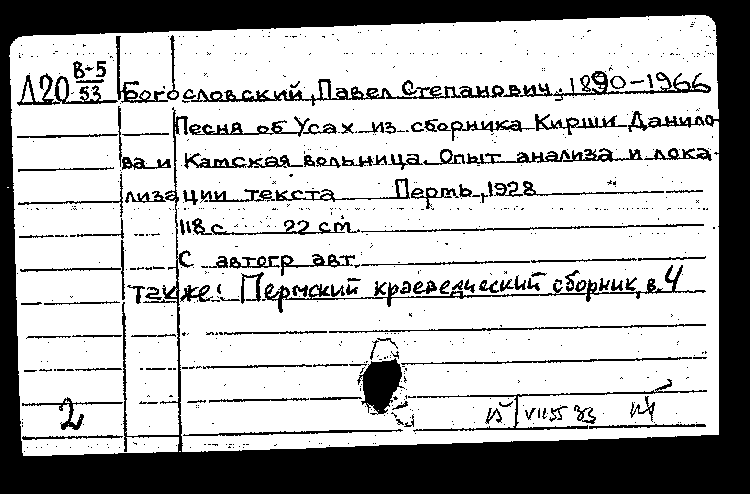 Л20 В-5/53 Богословский, Павел Степанович, 1890-1966
Песня об Усах из сборника Кирши Данило-
ва и Камская вольница. Опыт анализа и лока-
лизации текста Пермь, 1928
118 с 22 cm
С автогр авт
также: Пермский краеведческий сборник, в. 4
2